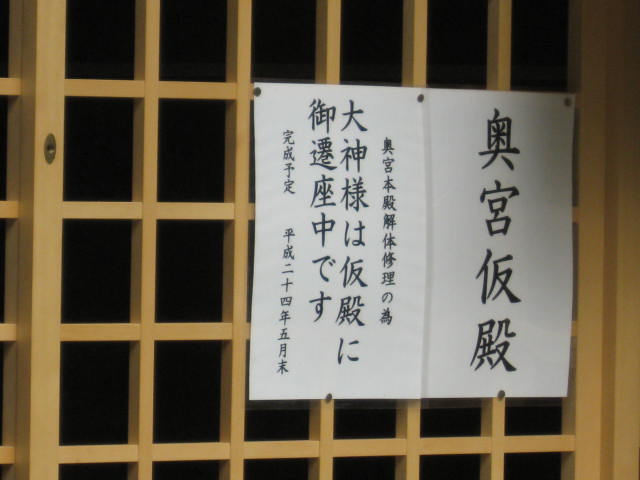 奥宮仮殿
奥宮本殿解体修理の為
大神様は仮殿に
御遷座中です
完成予定 平成二十四年五月末